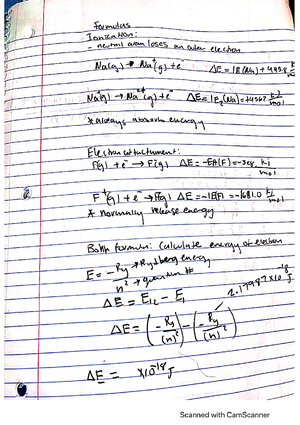 Formulas
Ionization:
- neutral atom loses an outer electron
Na(g) → Na⁺(g) + e⁻ ΔE = IE(Na) = +495.8 kJ
Na⁺(g) → Na²⁺(g) + e⁻ ΔE = IE₂(Na) = +4567 kJ/mol
* always absorbs energy
Electron attachment:
F(g) + e⁻ → F⁻(g) ΔE = -EA(F) = -328 kJ/mol
F⁺(g) + e⁻ → F(g) ΔE = -IE(F) = -1681.0 kJ/mol
* normally release energy
Bohr formula: Calculate energy of electron
E = -Ry/n² → Rydberg energy
→ quantum #
ΔE = E₁₂ - E₁
2.17987 × 10⁻¹⁸ J
ΔE = (-Ry/(n)²) - (-Ry/(n)²)
ΔE = ×10⁻¹⁸ J
Scanned with CamScanner